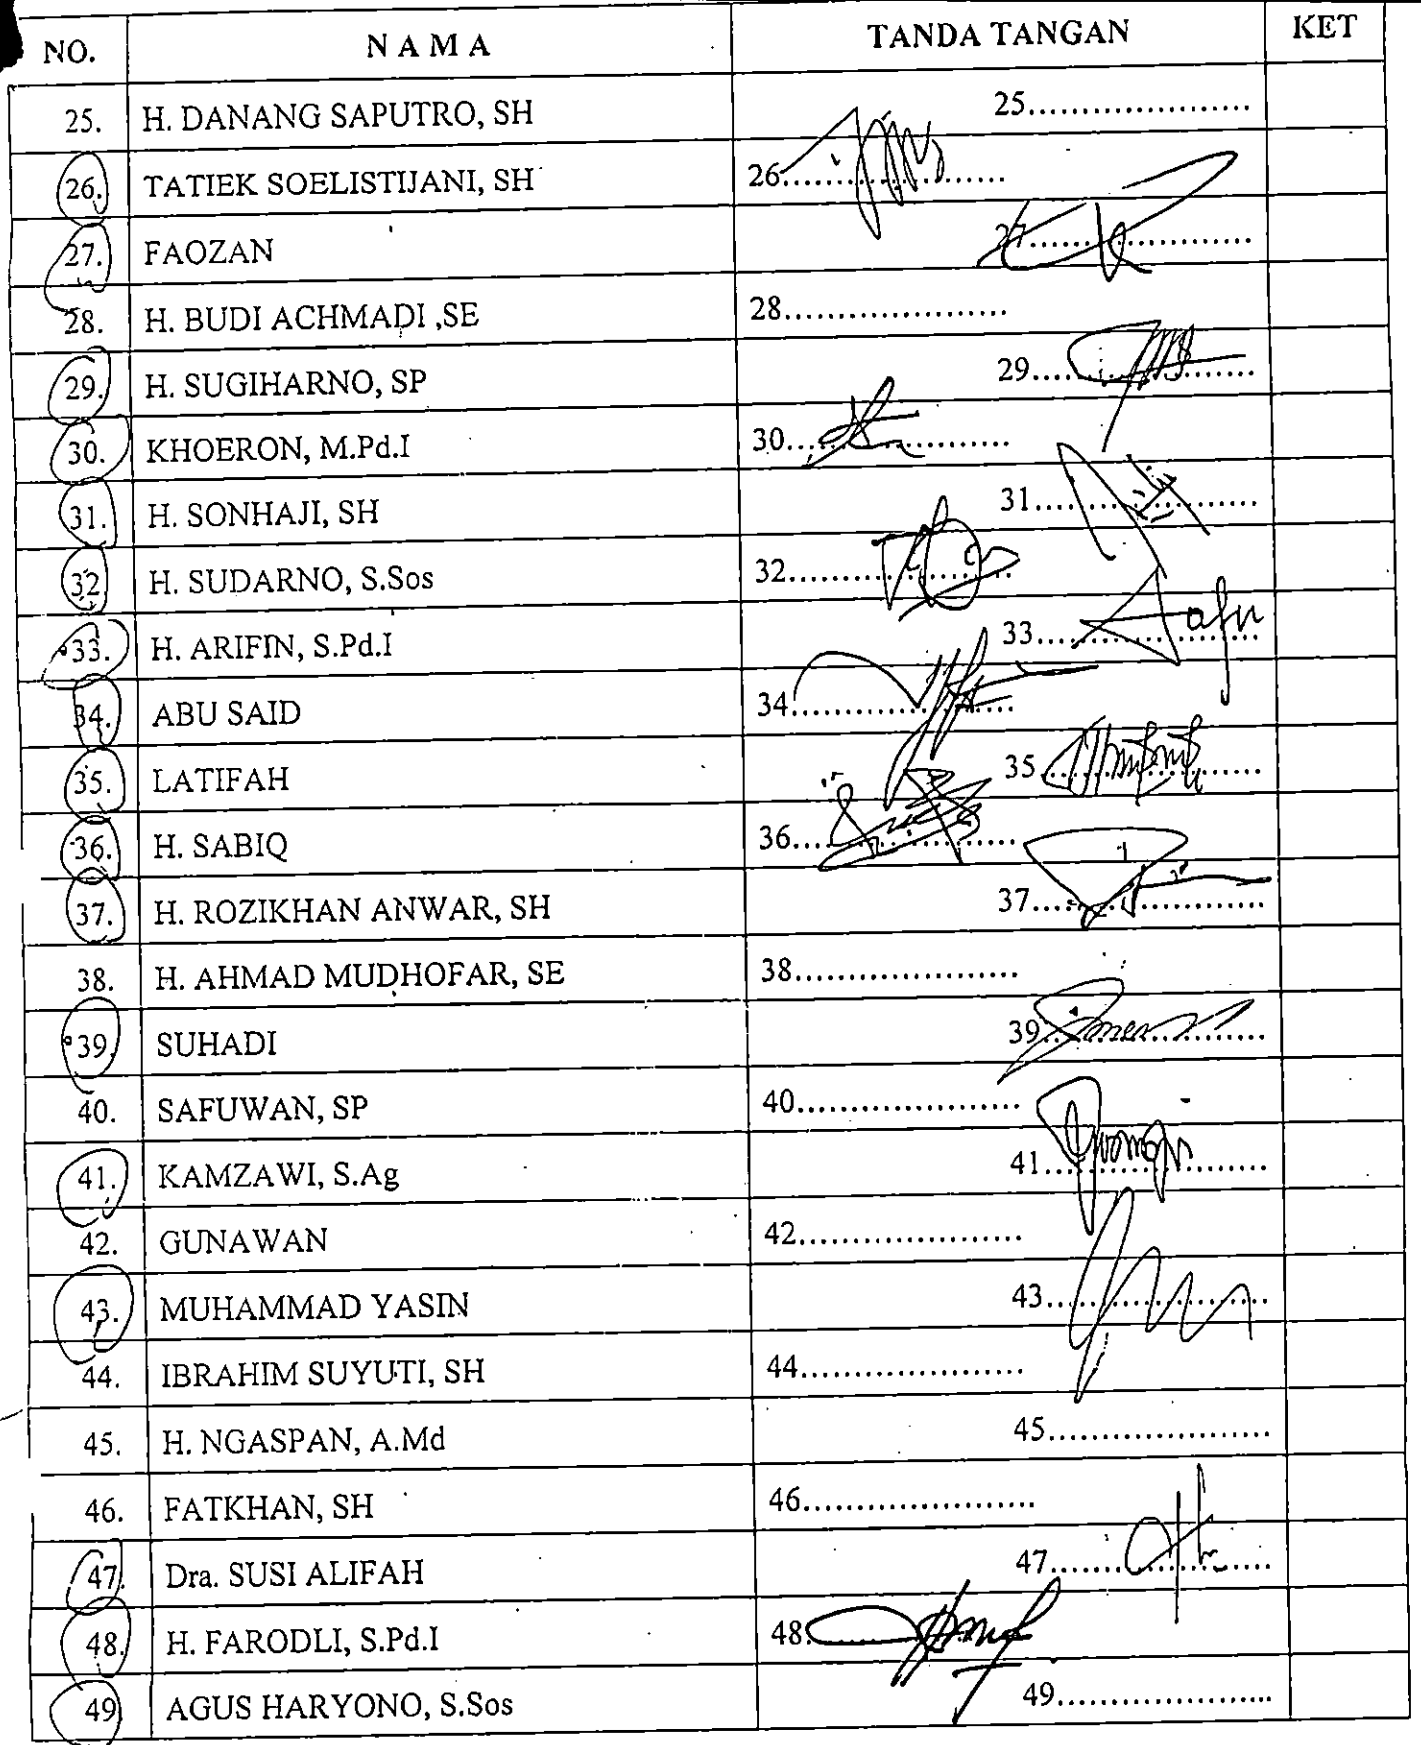 NO. N A M A TANDA TANGAN KET
25. H. DANANG SAPUTRO, SH 25.....................
26. TATIEK SOELISTIJANI, SH 26.....................
27. FAOZAN 27.....................
28. H. BUDI ACHMADI ,SE 28.....................
29. H. SUGIHARNO, SP 29.....................
30. KHOERON, M.Pd.I 30.....................
31. H. SONHAJI, SH 31.....................
32 H. SUDARNO, S.Sos 32.....................
33. H. ARIFIN, S.Pd.I 33.....................
34. ABU SAID 34.....................
35. LATIFAH 35.....................
36. H. SABIQ 36.....................
37. H. ROZIKHAN ANWAR, SH 37.....................
38. H. AHMAD MUDHOFAR, SE 38.....................
39. SUHADI 39.....................
40. SAFUWAN, SP 40.....................
41. KAMZAWI, S.Ag 41.....................
42. GUNAWAN 42.....................
43. MUHAMMAD YASIN 43.....................
44. IBRAHIM SUYUTI, SH 44.....................
45. H. NGASPAN, A.Md 45.....................
46. FATKHAN, SH 46.....................
47. Dra. SUSI ALIFAH 47.....................
48. H. FARODLI, S.Pd.I 48.....................
49 AGUS HARYONO, S.Sos 49.....................